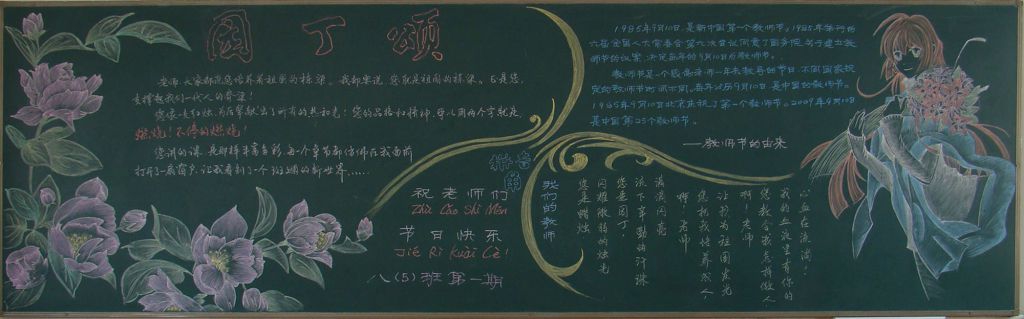 园丁颂
老师,大家都说您培养着祖国的栋梁。我却要说,您就是祖国的栋梁。正是您,
支撑起我们一代人的脊梁!
您像一支红烛,为后辈献出了所有的热和光!您的品格和精神,可以用两个字就是
燃烧!不停的燃烧!
您讲的课,是那样丰富多彩,每一个章节都仿佛在我面前
打开了一扇窗户,让我看到了一个的新世界……
祝老师们
Zhù Lǎo Shī Mén
节日快乐
Jié Rì Kuài Lè!
八(5)班第一期
1985年9月10日,是新中国第一个教师节。1985年举行的
六届全国人大常委会第九次会议同意了国务院关于建立教
师节的议案,决定每年的9月10日为教师节。
教师节是一个感谢老师一年来教导的节日,不同国家规
定的教师节时间不同。每年公历9月10日是中国的教师节。
1985年9月10日北京庆祝了第一个教师节。2009年9月10日
是中国第25个教师节。
——教师节的由来
诗音角
我们的老师
您是蜡烛
闪耀微弱的烛光
您是园丁,
流下辛勤的汗珠
滴滴闪亮
啊!老师
您把我培养成人
让我为祖国发光
啊!老师
您教会我怎样做人
我的血液里有你的
心血在流淌!